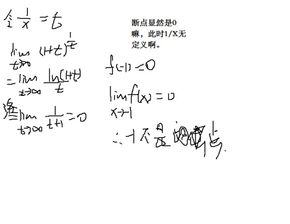 令 1/x = t
lim t→∞ (1+t)^(1/t)
= lim t→∞ ln(1+t)/t
lim t→∞ 1/(t+1) = 0
断点显然是0
嘛，此时1/X无
定义啊。
f(-1)=0
lim x→-1 f(x)=0
∴ -1不是
点.